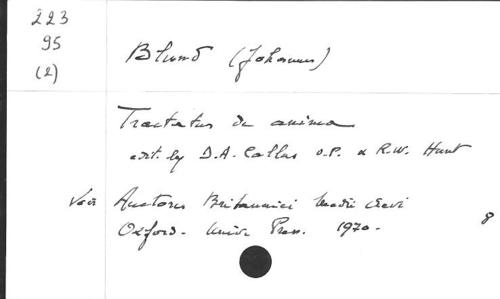 223
95
(2)
Blund (Johannes)
Tractatus de anima
edit. by D.A. Callus O.P. & R.W. Hunt
Voir Auctores Britannici Medii Aevi
8
Oxford. Univ. Press. 1970.